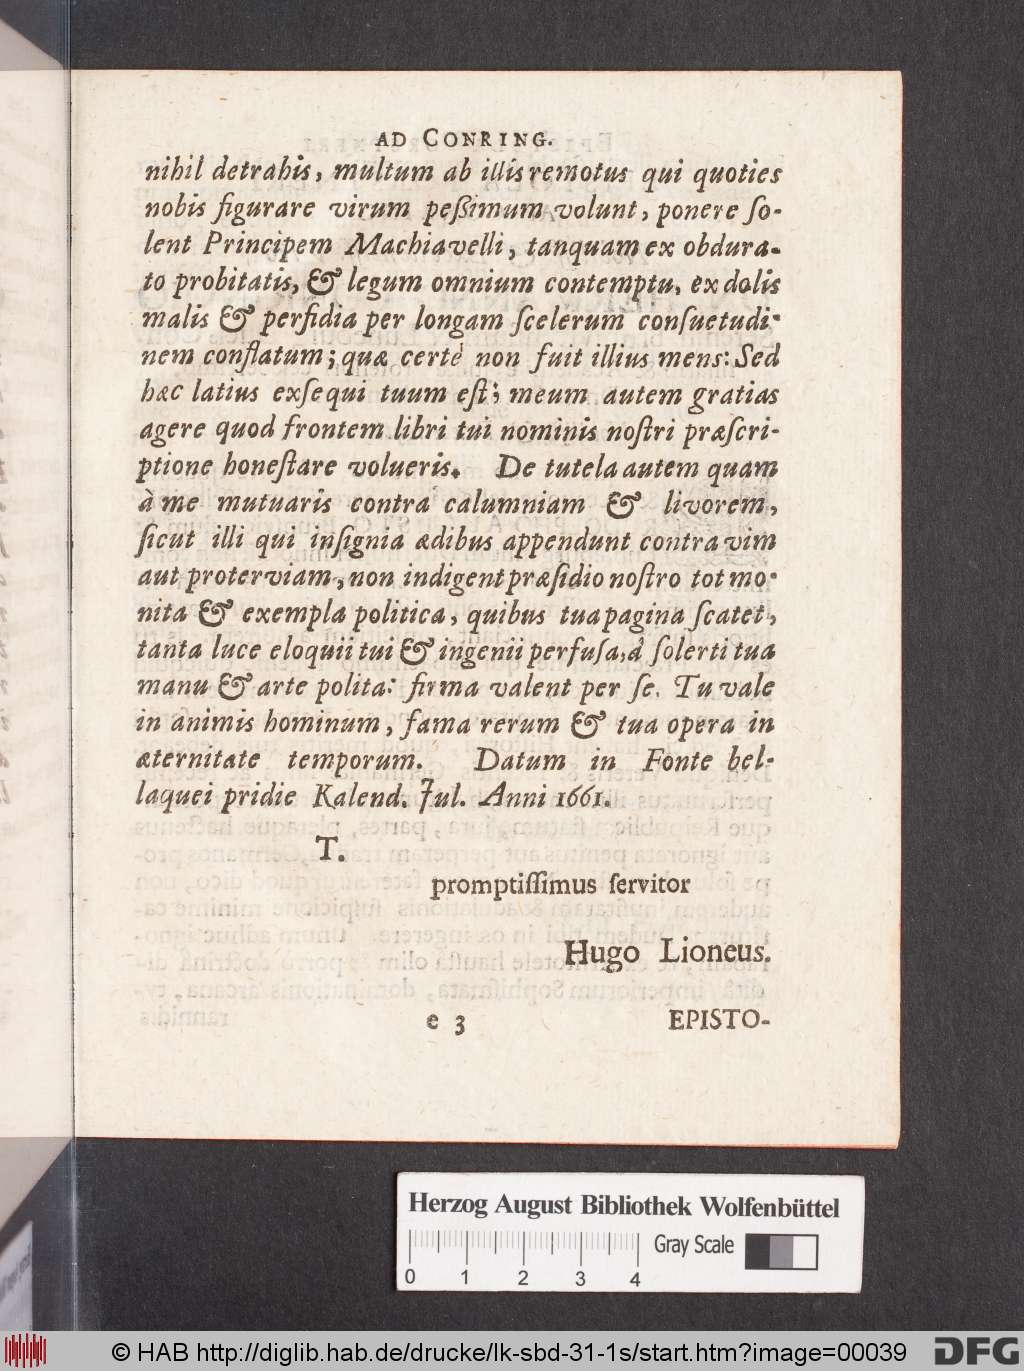 AD CONRING.
nihil detrahis, multum ab illis remotus qui quoties
nobis figurare virum peßimum volunt, ponere ſo-
lent Principem Machiavelli, tanquam ex obdura-
to probitatis, & legum omnium contemptu, ex dolis
malis & perfidia per longam ſcelerum conſuetudi-
nem conflatum; quæ certè non fuit illius mens: Sed
hæc latius exſequi tuum eſt; meum autem gratias
agere quod frontem libri tui nominis noſtri præſcri-
ptione honeſtare volueris. De tutela autem quam
à me mutuaris contra calumniam & livorem,
ſicut illi qui inſignia ædibus appendunt contra vim
aut proterviam, non indigent præſidio noſtro tot mo-
nita & exempla politica, quibus tua pagina ſcatet,
tanta luce eloquii tui & ingenii perfuſa, à ſolerti tua
manu & arte polita: firma valent per ſe. Tu vale
in animis hominum, fama rerum & tua opera in
æternitate temporum. Datum in Fonte bel-
laquei pridie Kalend. Jul. Anni 1661.
T.
promptiſſimus ſervitor
Hugo Lioneus.
e 3 EPISTO-
Herzog August Bibliothek Wolfenbüttel
Gray Scale
0 1 2 3 4
© HAB http://diglib.hab.de/drucke/lk-sbd-31-1s/start.htm?image=00039
DFG